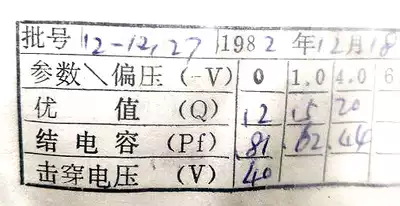 批号 12-12,27 1982年12月18
参数\偏压(-V) 0 1.0 4.0 6
优 值 (Q) 12 15 20
结电容(Pf) .81 .62 .44
击穿电压(V) 40